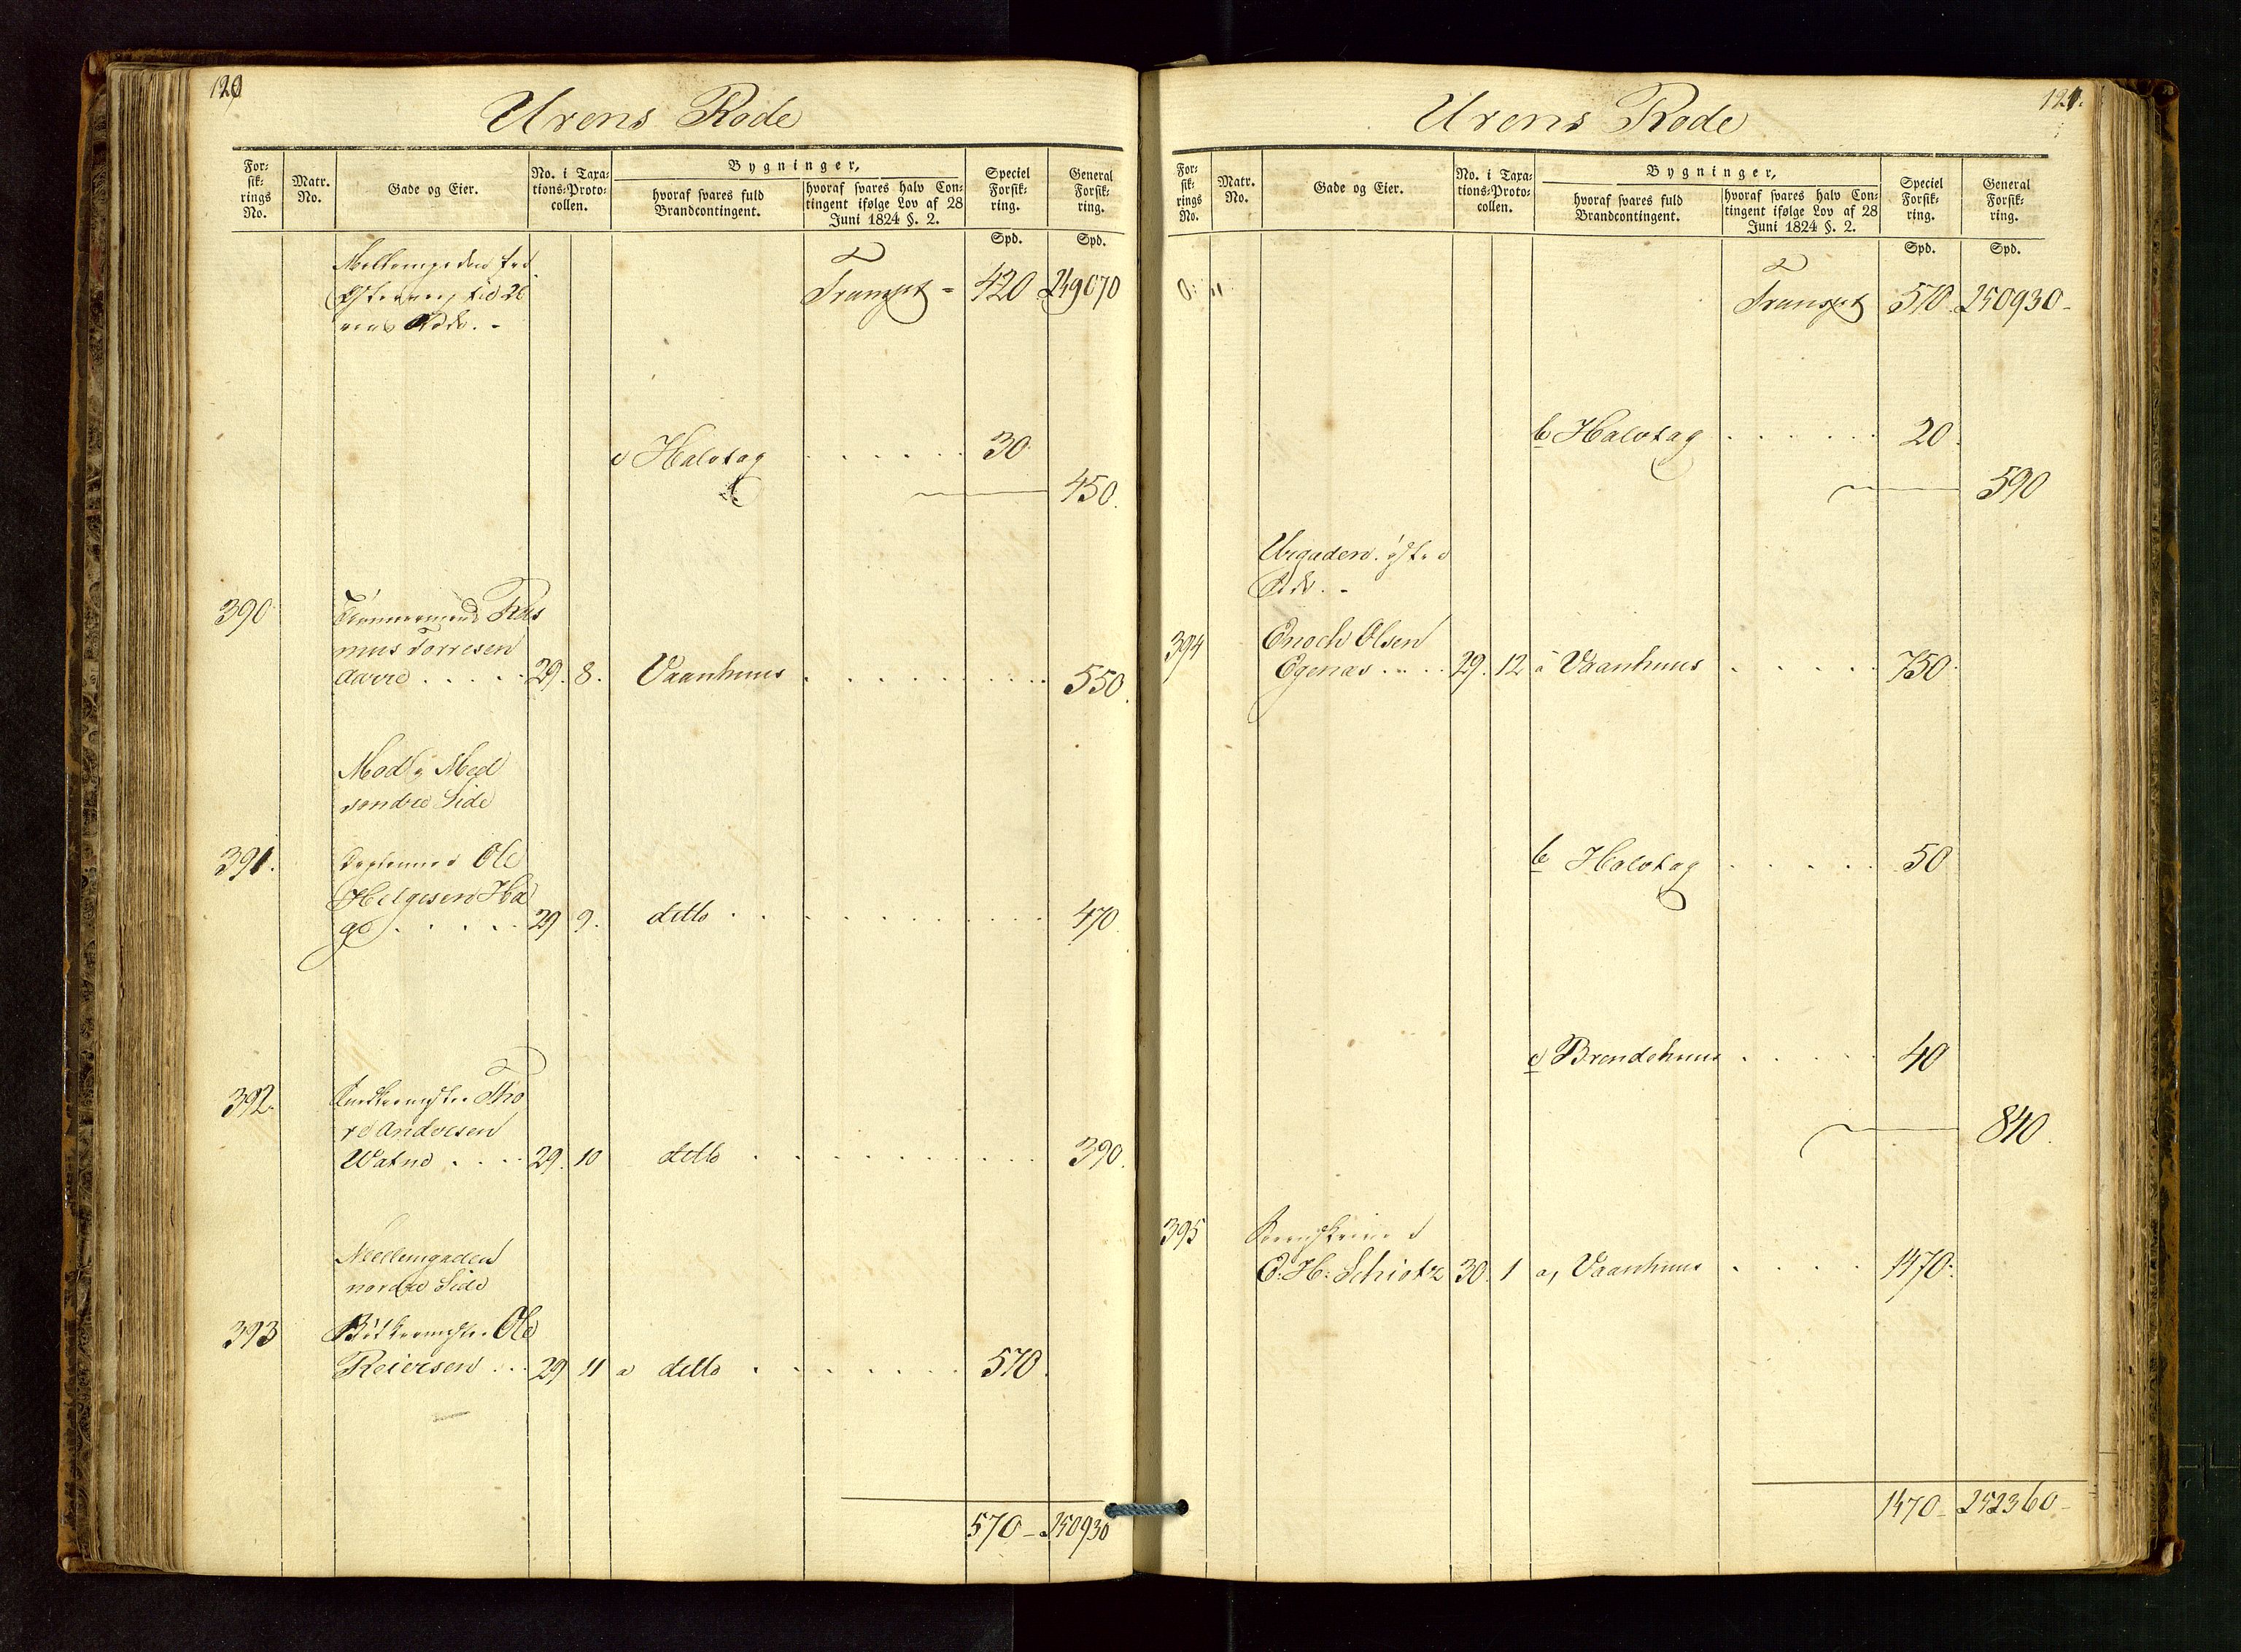 120
Urens Rode
For-
sik-
rings
No.
Matr.
No.
Gade og Eier.
No. i Taxa-
tions-Proto-
collen.
Bygninger,
hvoraf svares fuld
Brandcontingent.
hvoraf svares halv Con-
tingent ifølge Lov af 28
Juni 1824 §. 2.
Speciel
Forsik-
ring.
General
Forsik-
ring.
Spd.
Spd.
Transpt = 420 249070
c Halvtag . . . . . . 30
450.
390 Tømmermand Ras
mus Torresen
Aarre . . . . . 29. 8. Vaanhuus . . . . . . . . . . 550.
søndre Side
391. Ole
Helgesen Ha
ge . . . . . 29 9. ditto . . . . . . . . . . . 470.
392. Tho
re Andresen
Watne . . . . 29. 10 ditto . . . . . . . . . . . 390.
Mellemgaden
nordre Side
393 Ole
Reiersen . . . 29 11 a ditto . . . . . . . 570.
570 - 250930
121.
Urens Rode
For-
sik-
rings
No.
Matr.
No.
Gade og Eier.
No. i Taxa-
tions-Proto-
collen.
Bygninger,
hvoraf svares fuld
Brandcontingent.
hvoraf svares halv Con-
tingent ifølge Lov af 28
Juni 1824 §. 2.
Speciel
Forsik-
ring.
General
Forsik-
ring.
Spd.
Spd.
Transpt 570. 250930-
b Halvtag . . . . . . 20.
590
Urgaden. østre
Side. -
394 Enoch Olsen
Egenæs . . . . 29. 12 a Vaanhuus . . . . . 750.
b Halvtag . . . . . 50
c Brendehuus . . . . . 40
840.
395
O: H: Schiøtz 30. 1 a, Vaanhuus . . . . 1470.
1470 - 252360-